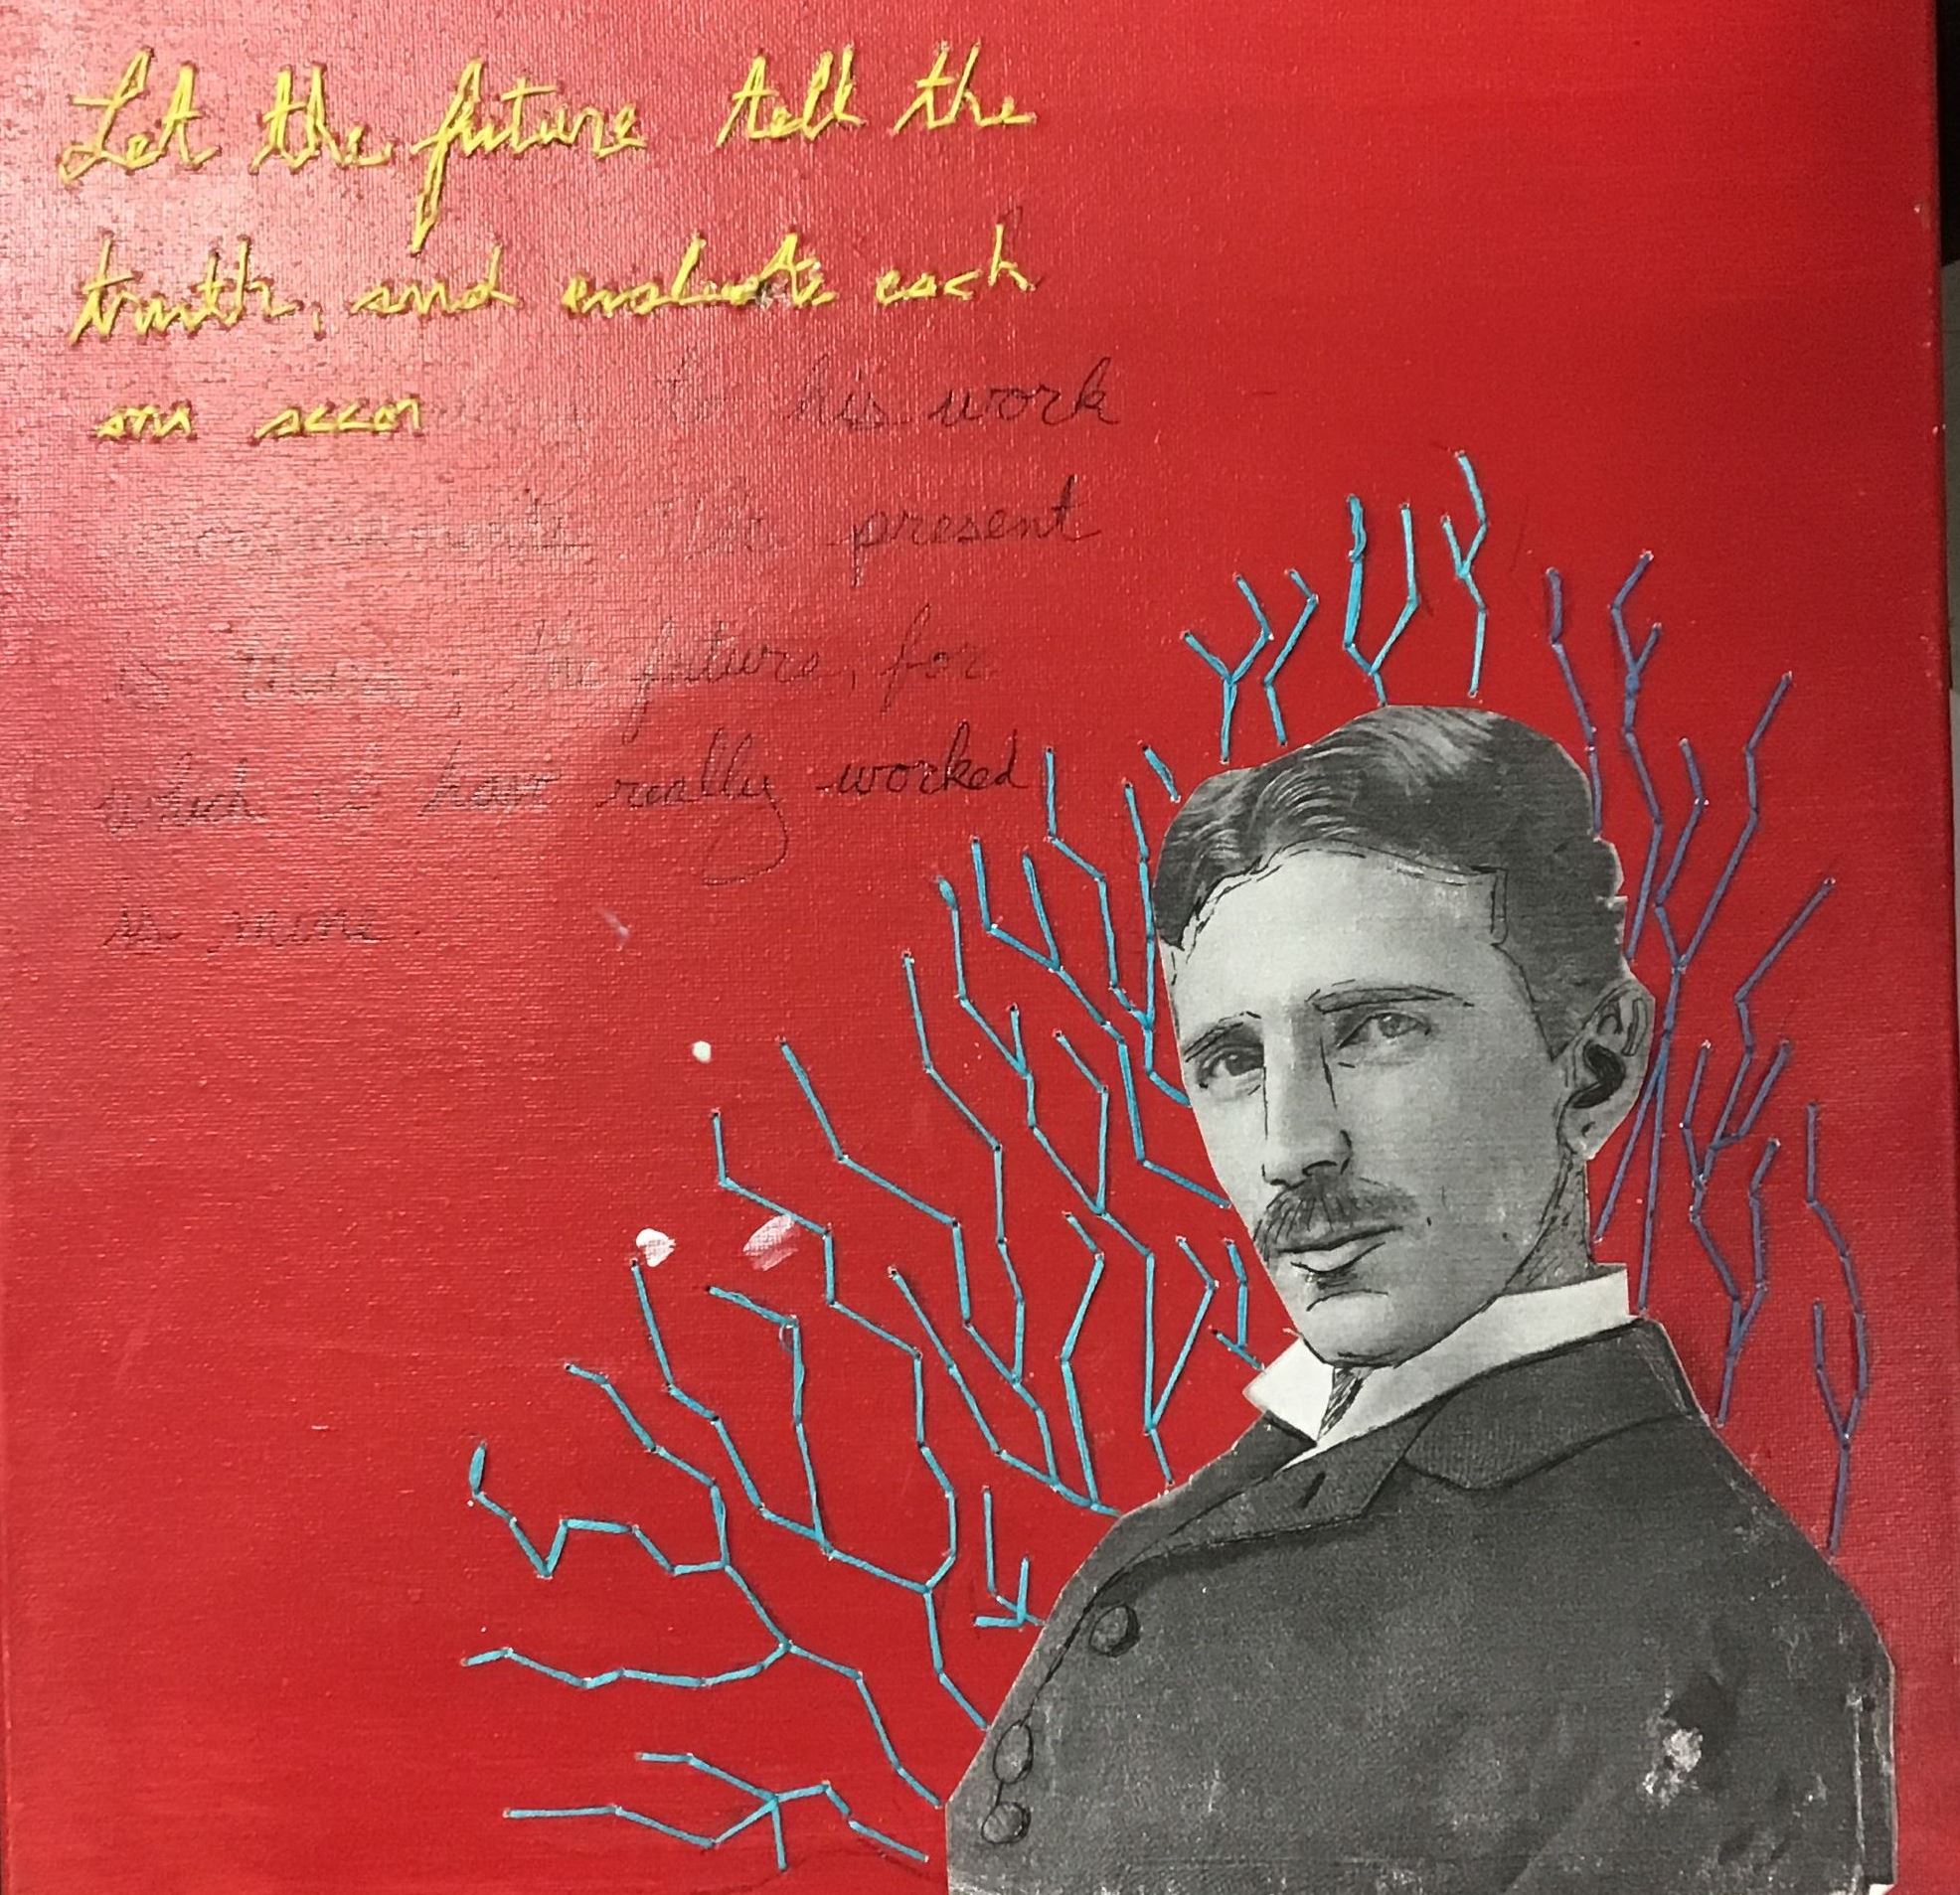 Let the future tell the
truth, and evaluate each
one accor to his work
The present
is theirs, the future, for
which I have really worked
is mine.